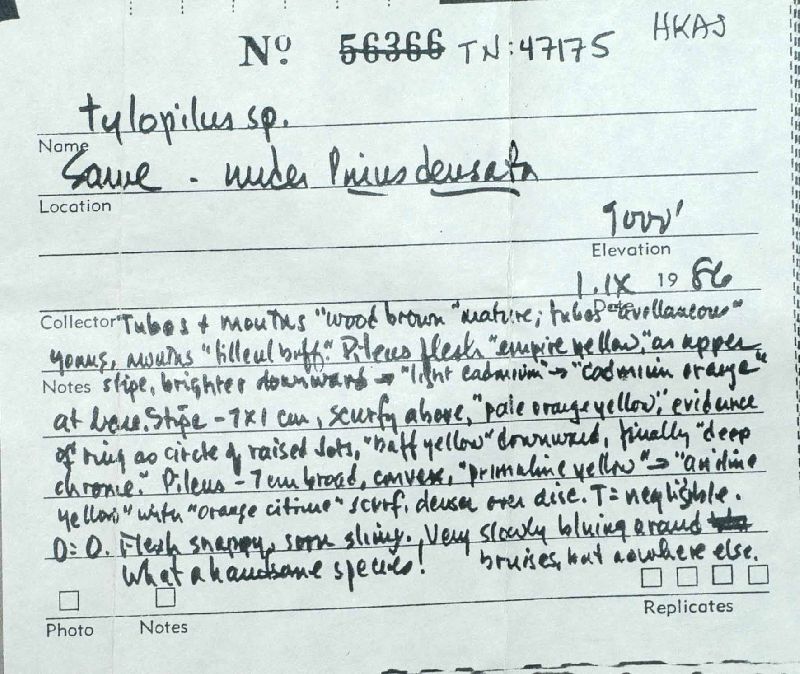 Nº 56366 TN: 47175 HKAS
Tylopilus sp.
Name
Same - under Pinus densata
Location
9000'
Elevation
1.IX 1986
Date
Collector "Tubes & mouths "wood brown" mature; tubes "avellaneous"
young, mouths "tilleul buff." Pileus flesh "empire yellow," as upper
Notes stipe, brighter downward → "light cadmium" → "cadmium orange"
at base. Stipe - 7x1 cm, scurfy above, "pale orange yellow," evidence
of ring as circle of raised dots, "buff yellow" downward, finally "deep
chrome." Pileus - 7 cm broad, convex, "primuline yellow" → "aniline
yellow" with "orange citrine" scurf, denser over disc. T = negligible.
O = O. Flesh snappy, soon slimy. Very slowly bluing around
What a handsome species! bruises, but nowhere else.
Photo Notes Replicates